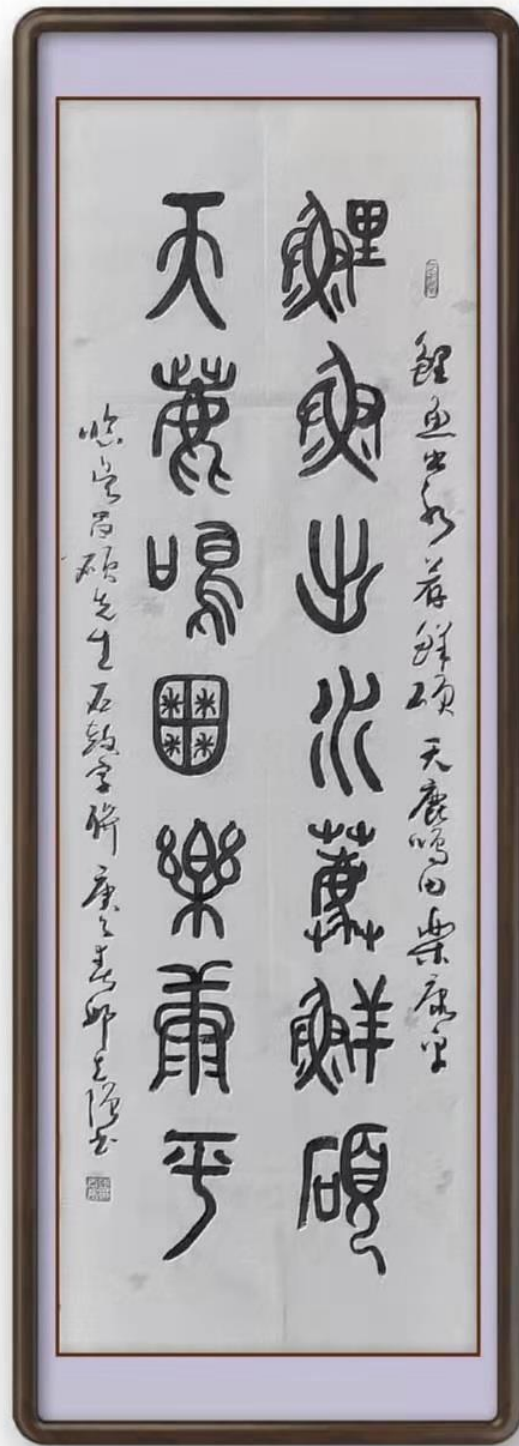 鯉魚出水荐鮮碩 天鹿鳴囿樂康平
鯉魚出水薦鮮碩
天鹿鳴囿樂康平
臨吳昌碩先生石鼓字聯 庚子春 書